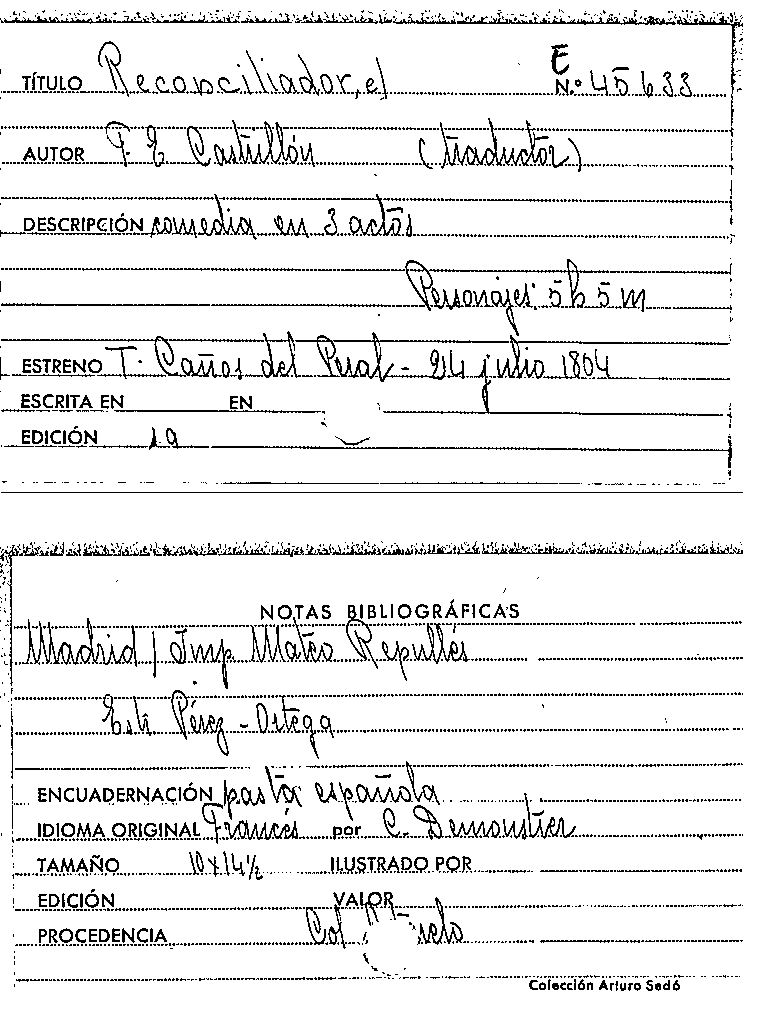 TÍTULO Reconciliador, el E
N.º 45633
AUTOR F. E Castrillón (traductor)
DESCRIPCIÓN comedia en 3 actos
Personajes: 5 h 5 m
ESTRENO T. Caños del Peral - 24 julio 1804
ESCRITA EN EN
EDICIÓN 1a
NOTAS BIBLIOGRÁFICAS
Madrid / Imp Mateo Repullés
Est. Pérez - Ortega
ENCUADERNACIÓN pasta española
IDIOMA ORIGINAL Francés por C. Demoustier
TAMAÑO 10x14½ ILUSTRADO POR
EDICIÓN VALOR
PROCEDENCIA Col
Colección Arturo Sedó